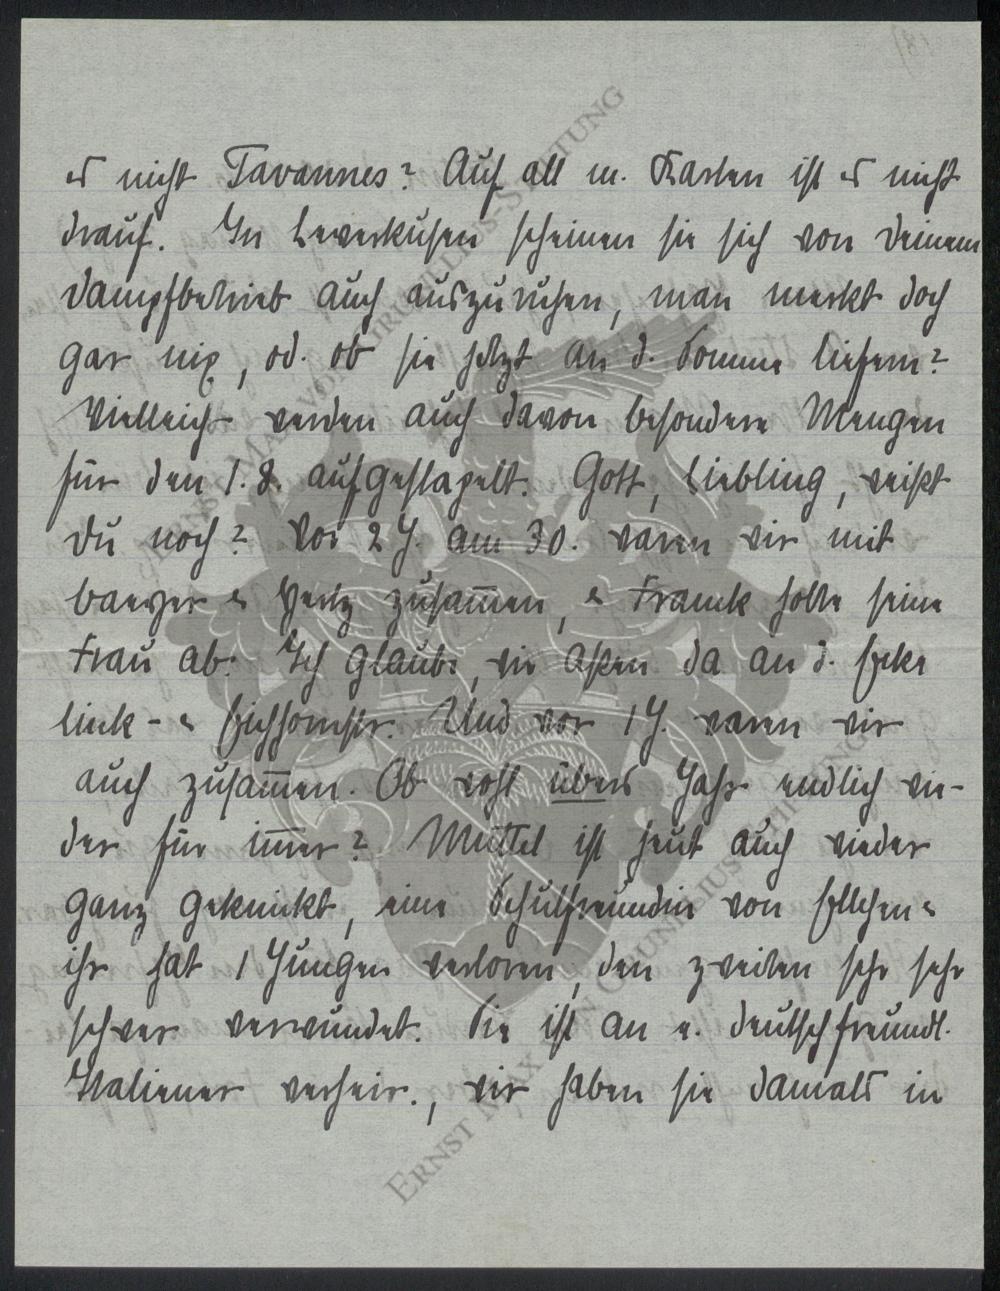 es nicht Tavannes? Auf all m. Karten ist es nicht
drauf. In Leverkusen scheinen sie sich von Deinem
Dampfbetrieb auch auszuruhen, man merkt doch
gar nix, od. ob sie jetzt an d. Somme liefern?
Vielleich- werden auch davon besondere Mengen
für den 1. 8. aufgestapelt. Gott, Liebling, weißt
Du noch? Vor 2 J. am 30. waren wir mit
baeyer & Hertz zusam̅en, & Franck holte seine
Frau ab. Ich glaube, wir aßen da an d. Ecke
Link- & Eichhornstr. Und vor 1 J. waren wir
auch zusam̅en. Ob wohl übers Jahr endlich wie-
der für im̅er? Muttel ist heut auch wieder
ganz geknickt, eine Schulfreundin von Ellchen &
ihr hat 1 Jungen verloren, den zweiten sehr sehr
schwer verwundet. Sie ist an e. deutschfreundl.
Italiener verheir., wir haben sie damals in
ERNST MAX VON GRUNELIUS-STIFTUNG
ERNST MAX VON GRUNELIUS-STIFTUNG